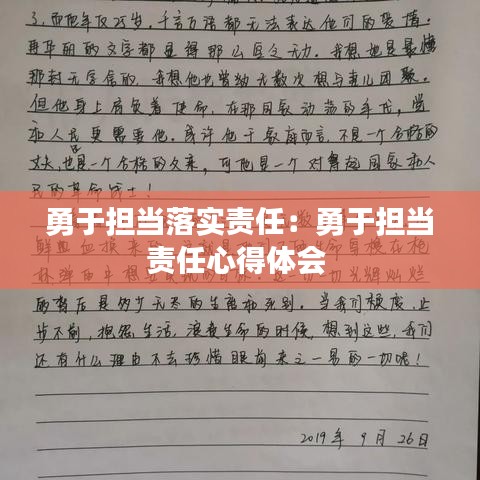 了,而他年仅25岁,千言万语都无法表达他们的衷情。
再华丽的文字都显得那么苍白无力。我想也是最懂
那封无字信的,我想他也曾纳无数次想与妻儿团聚。
但他身上肩负着使命,在那国家动荡的年代,党
和人民更需要他。或许他于家庭而言,不是一个合格的
丈夫,也是一个合格的父亲,可他是一个对得起国家和人
民的革命战士!
勇于担当落实责任:勇于担当
责任心得体会
鲜血换来
的背后是多少无尽的生离和死别。当我们颓废、止
步不前,抱怨生活,浪费生命的时候,想到这些,我们
还有什么理由不去珍惜眼前来之不易的一切呢!
2019年9月26日